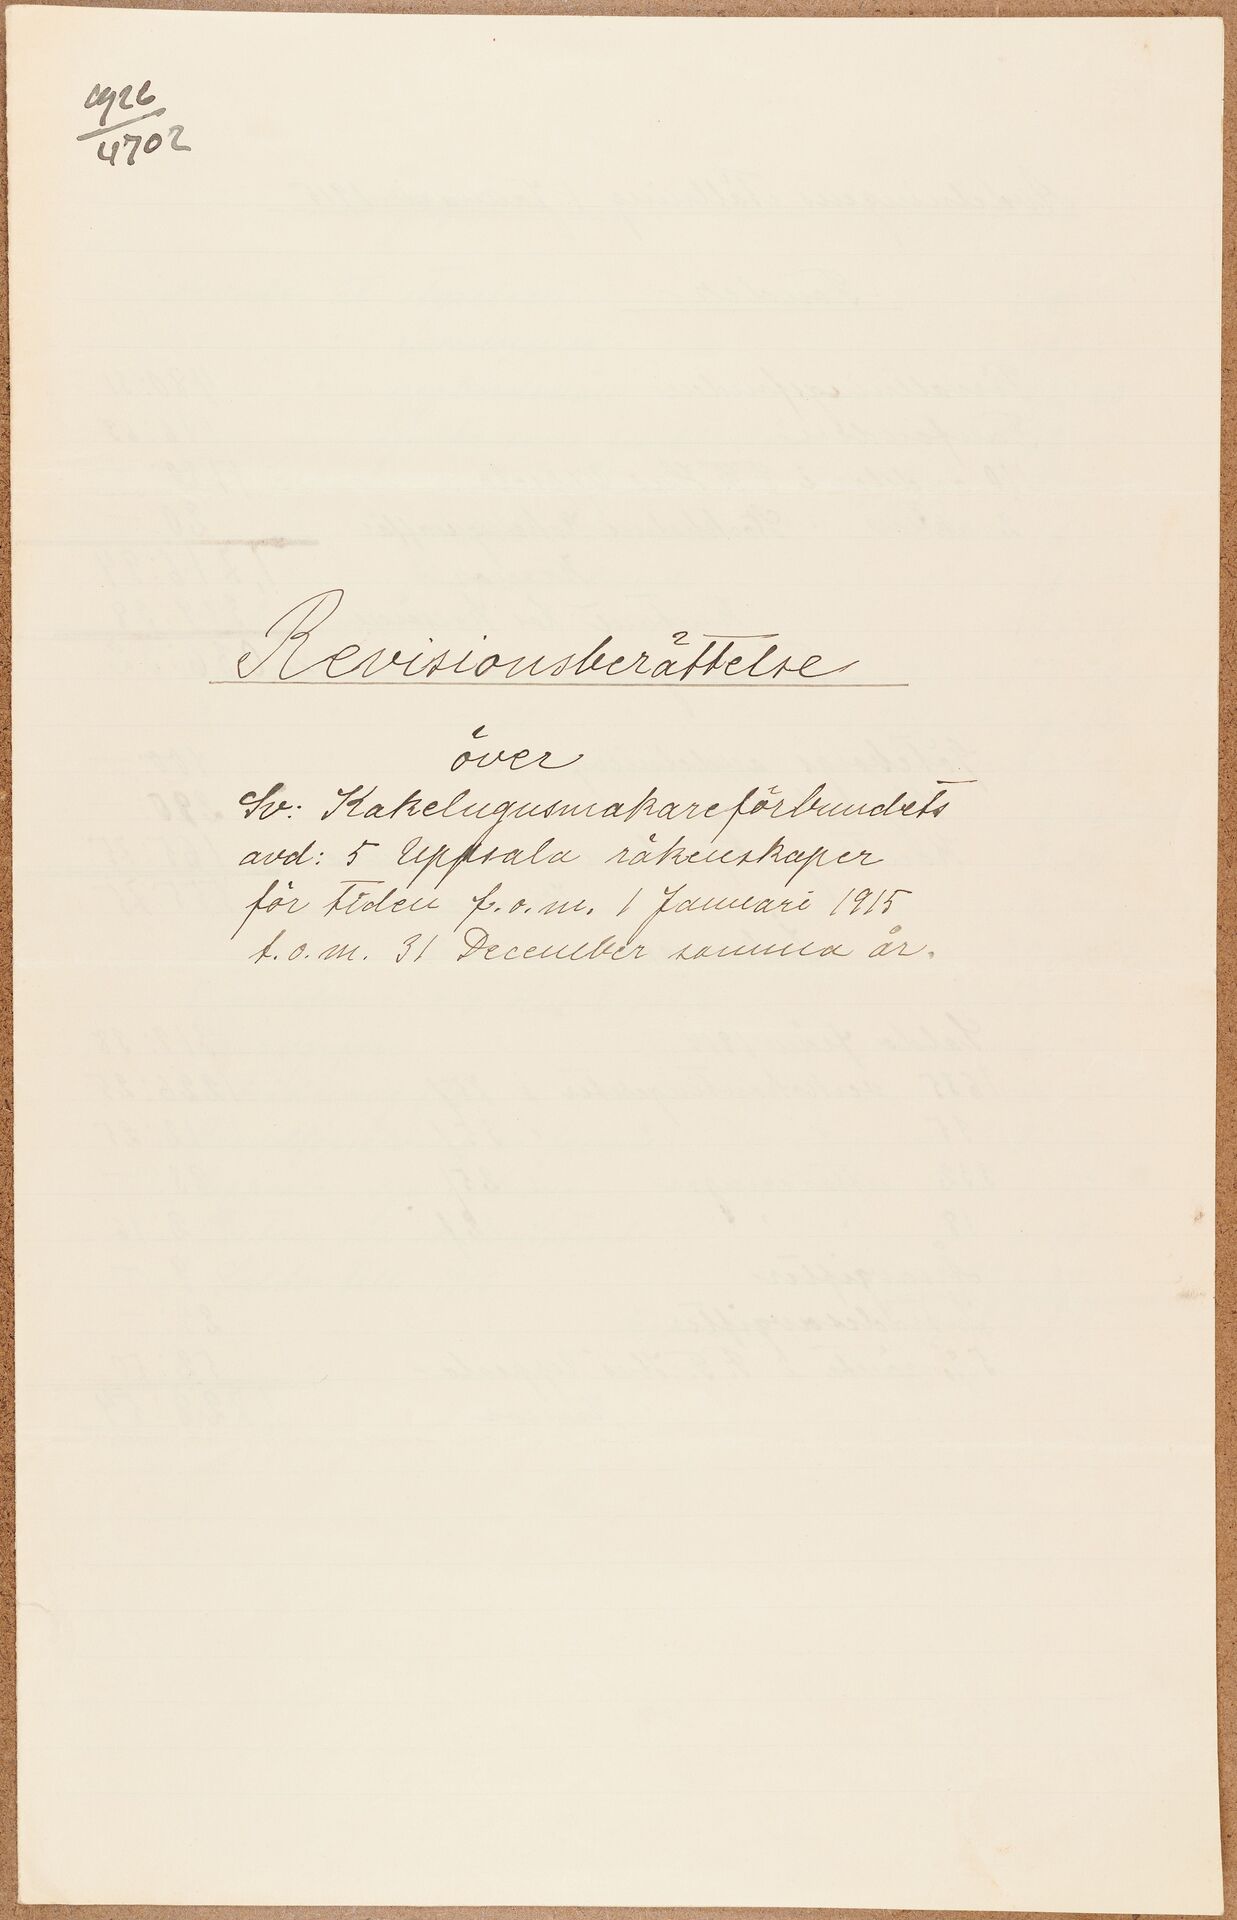 1926
4702
Revisionsberättelse
över
Sv: Kakelugnsmakareförbundets
avd: 5 Uppsala räkenskaper
för tiden f.o.m. 1 Januari 1915
t.o.m. 31 December samma år.